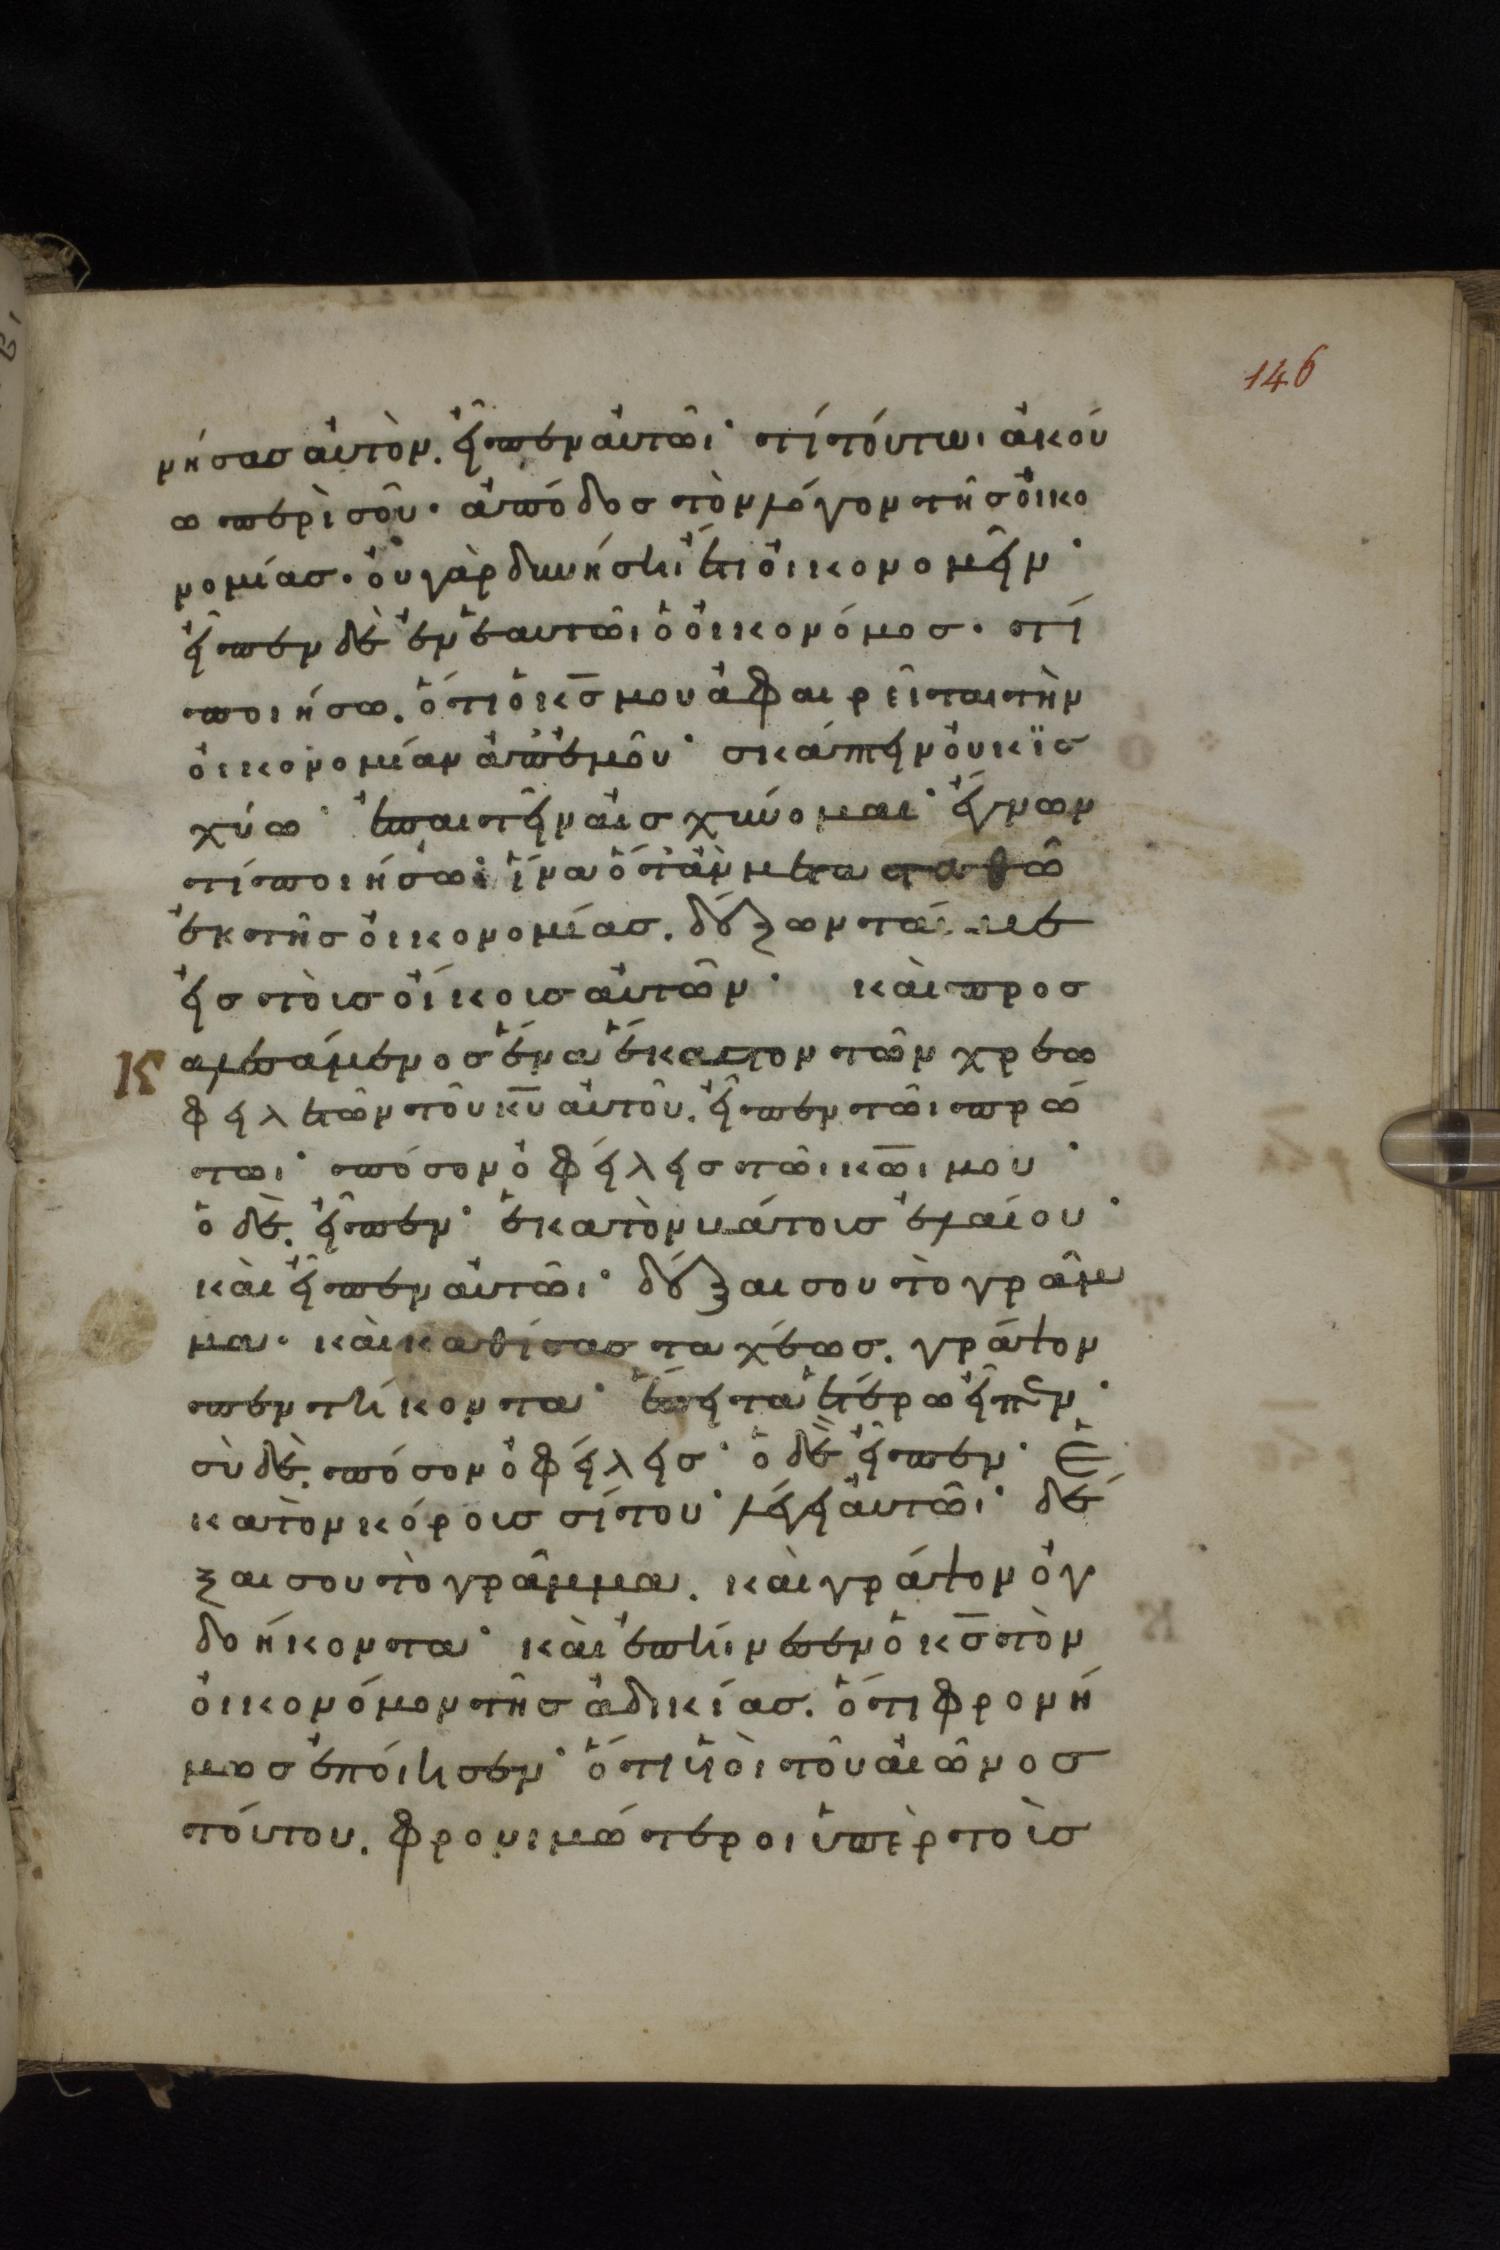 146
νήσας αὐτὸν. εἶπεν αὐτῶι· τί τούτωι ἀκού
ω περὶ σοῦ· ἀπόδος τὸν λόγον τῆς οἰκο
νομίας· οὐ γὰρ δυνήσηι ἔτι οἰκονομεῖν·
εἶπεν δὲ ἐν ἑαυτῶι ὁ οἰκονόμος· τί
ποιήσω. ὅτι ὁ κ̅ς̅ μου ἀφαιρεῖται τὴν
οἰκονομίαν ἀπ' ἐμοῦ· σκάπτειν οὐκ ἰσ
χύω· ἐπαιτεῖν αἰσχύνομαι· ἔγνων
τί ποιήσω· ἵνα ὅταν μετασταθῶ
ἐκ τῆς οἰκονομίας. δέξωνταί με
εἰς τοὺς οἴκους αὐτῶν· καὶ προσ
Κ αλεσάμενος ἕνα ἕκαστον τῶν χρεω
φειλετῶν τοῦ κ̅υ̅ αὐτοῦ. εἶπεν τῶι πρώ
τωι· πόσον ὀφείλεις τῶι κ̅ω̅ι μου·
ὁ δὲ. εἶπεν· ἑκατὸν βάτους ἐλαίου·
καὶ εἶπεν αὐτῶι· δέξαι σου τὸ γράμ
μα· καὶ καθίσας ταχέως. γράψον
πεντήκοντα· ἔπειτα ἑτέρω εἶπεν·
σὺ δὲ. πόσον ὀφείλεις· ὁ δὲ εἶπεν· ἑ
κατὸν κόρους σίτου· λέγει αὐτῶι· δέ
ξαι σου τὸ γράμμα. καὶ γράψον ὀγ
δοήκοντα· καὶ ἐπήινεσεν ὁ κ̅ς̅ τὸν
οἰκονόμον τῆς ἀδικίας. ὅτι φρονί
μως ἐποίησεν· ὅτι υἱοὶ τοῦ αἰῶνος
τούτου. φρονιμώτεροι ὑπὲρ τοὺς